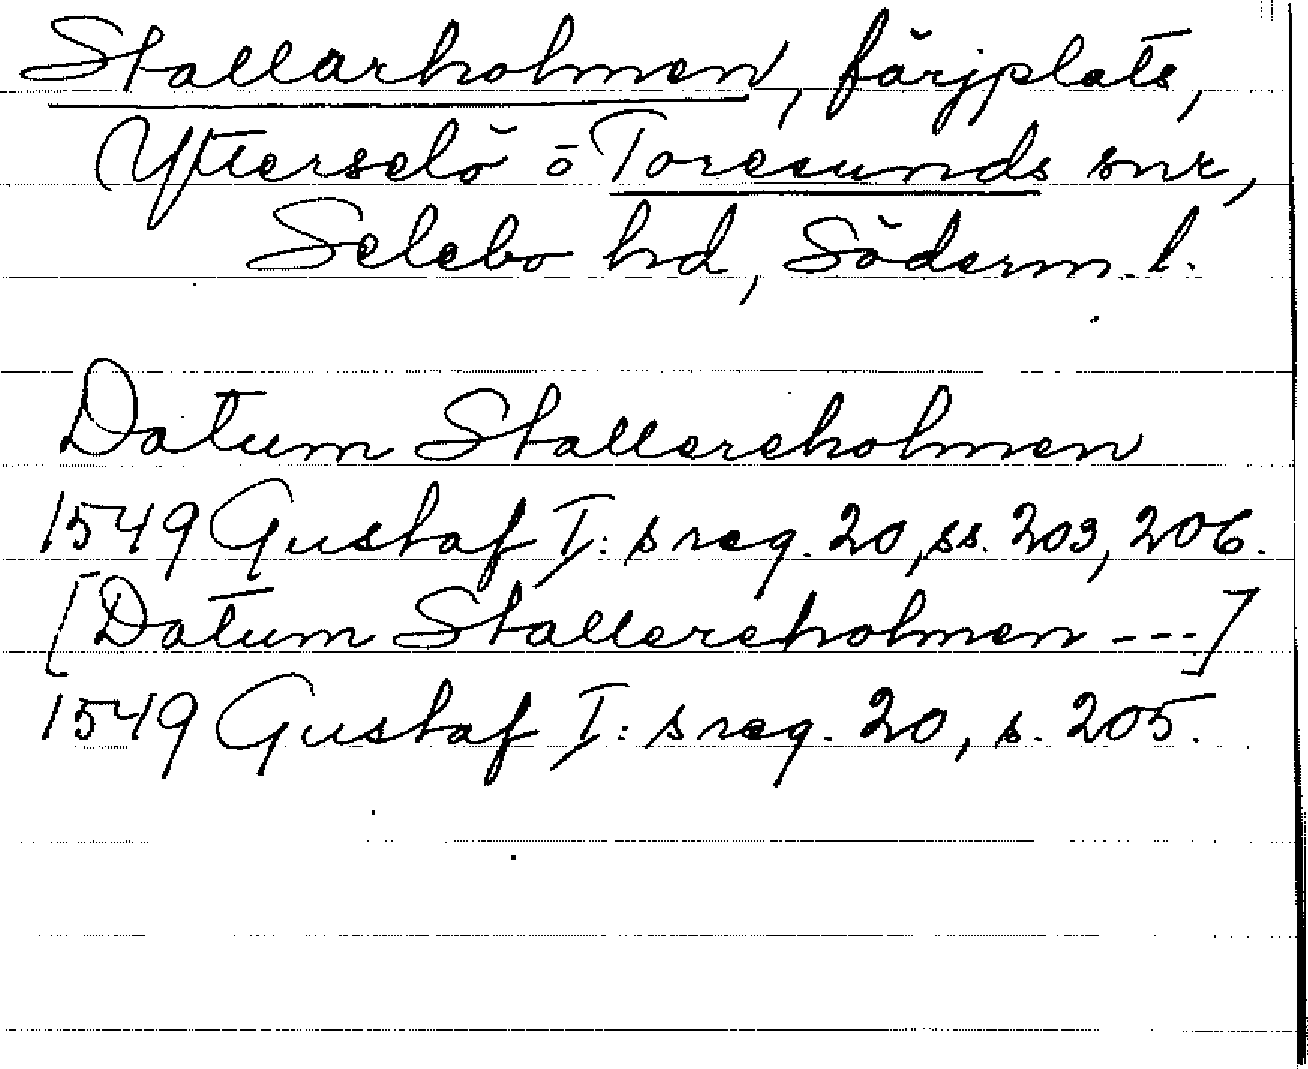 Stallarholmen, färjplats,
Ytterselö o Toresunds snr,
Selebo hd, Söderm. l.
Datum Stallereholmen
1549 Gustaf I: s reg. 20, ss. 203, 206.
[Datum Stallereholmen ---]
1549 Gustaf I: s reg. 20, s. 205.